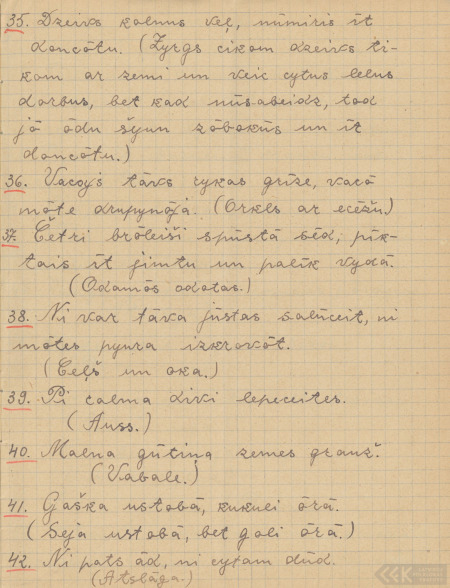 35. Dzeivs kolnus veļ, nūmiris īt
doncōtu. (Zyrgs cikom dzeivs ti-
kom ar zemi un veic cytus lelus
dorbus, bet kad nūsabeidz, tod
jō ōdu šyun zōbokūs un īt
doncōtu.)
36. Vacoys tāvs rykas grīze, vacō
mōte drupynōja. (Orkls ar ecēžu.)
37. Četri brōleiši spūstā sēd, pīk-
tais īt jimtu un palīk vydā.
(Odamōs odotas.)
38. Ni var tāva jūstas salūceit, ni
mōtes pyura izkrovōt.
(Ceļš un oka.)
39. Pi calma divi lepeceites.
(Auss.)
40. Malna gūtiņa zemes graužš.
(Vabale.)
41. Gaška ustobā, kukuli ōrā.
(Seja ustobā, bet goli ōrā.)
42. Ni pats ād, ni cytam dūd.
(Atslāga.)